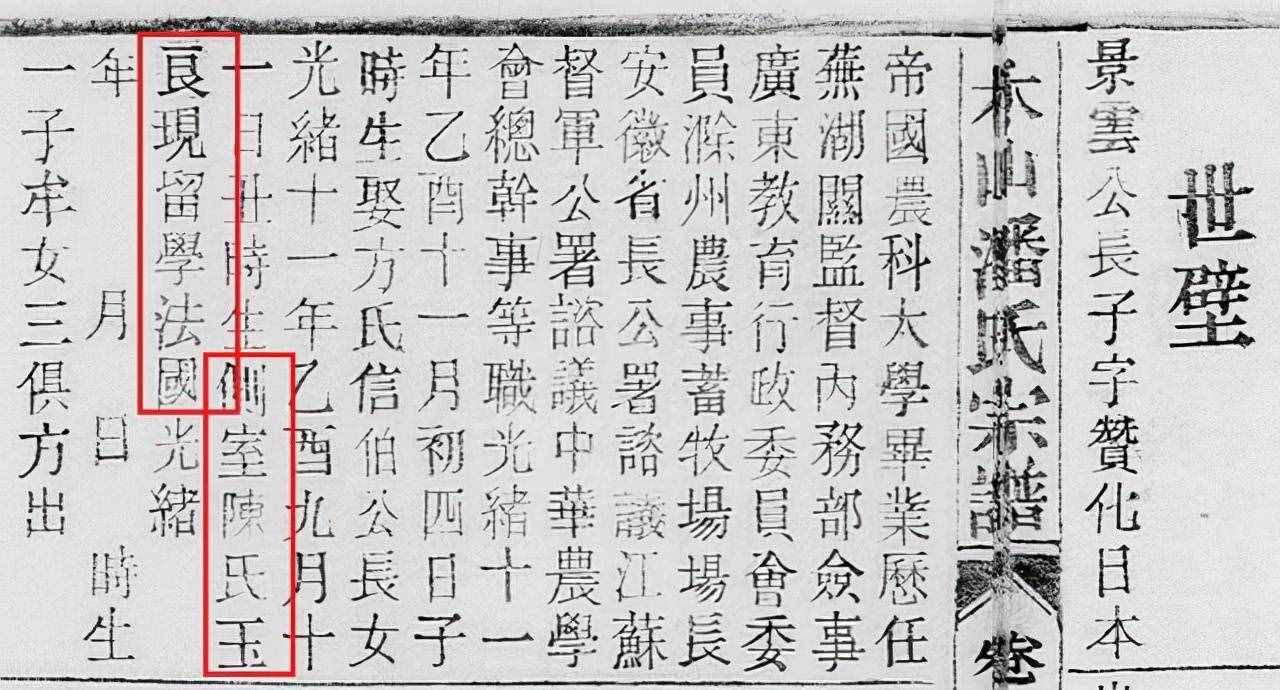 世璧
景雲公長子字贊化日本
木山潘氏宗譜 卷
帝國農科大學畢業歷任
蕪湖關監督內務部僉事
廣東教育行政委員會委
員滁州農事蓄牧場場長
安徽省長公署諮議江蘇
督軍公署諮議中華農學
會總幹事等職光緒十一
年乙酉十一月初四日子
時生娶方氏信伯公長女
光緒十一年乙酉九月十
一日丑時生側室陳氏玉
良現留學法國光緒
年 月 日 時生
一子牟女三俱方出